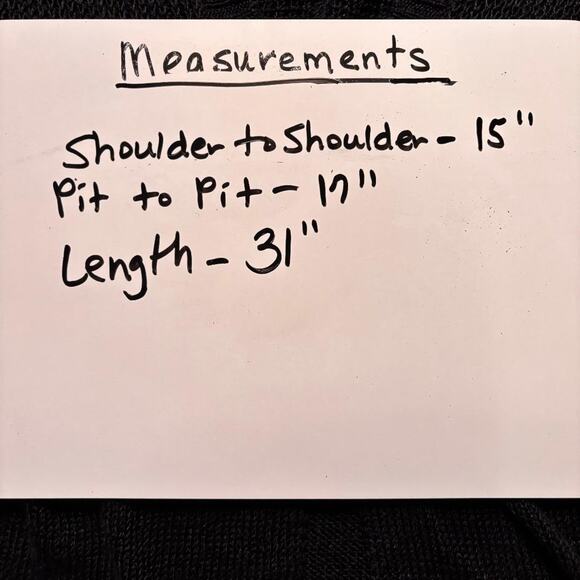 Measurements
Shoulder to Shoulder - 15"
Pit to Pit - 17"
Length - 31"